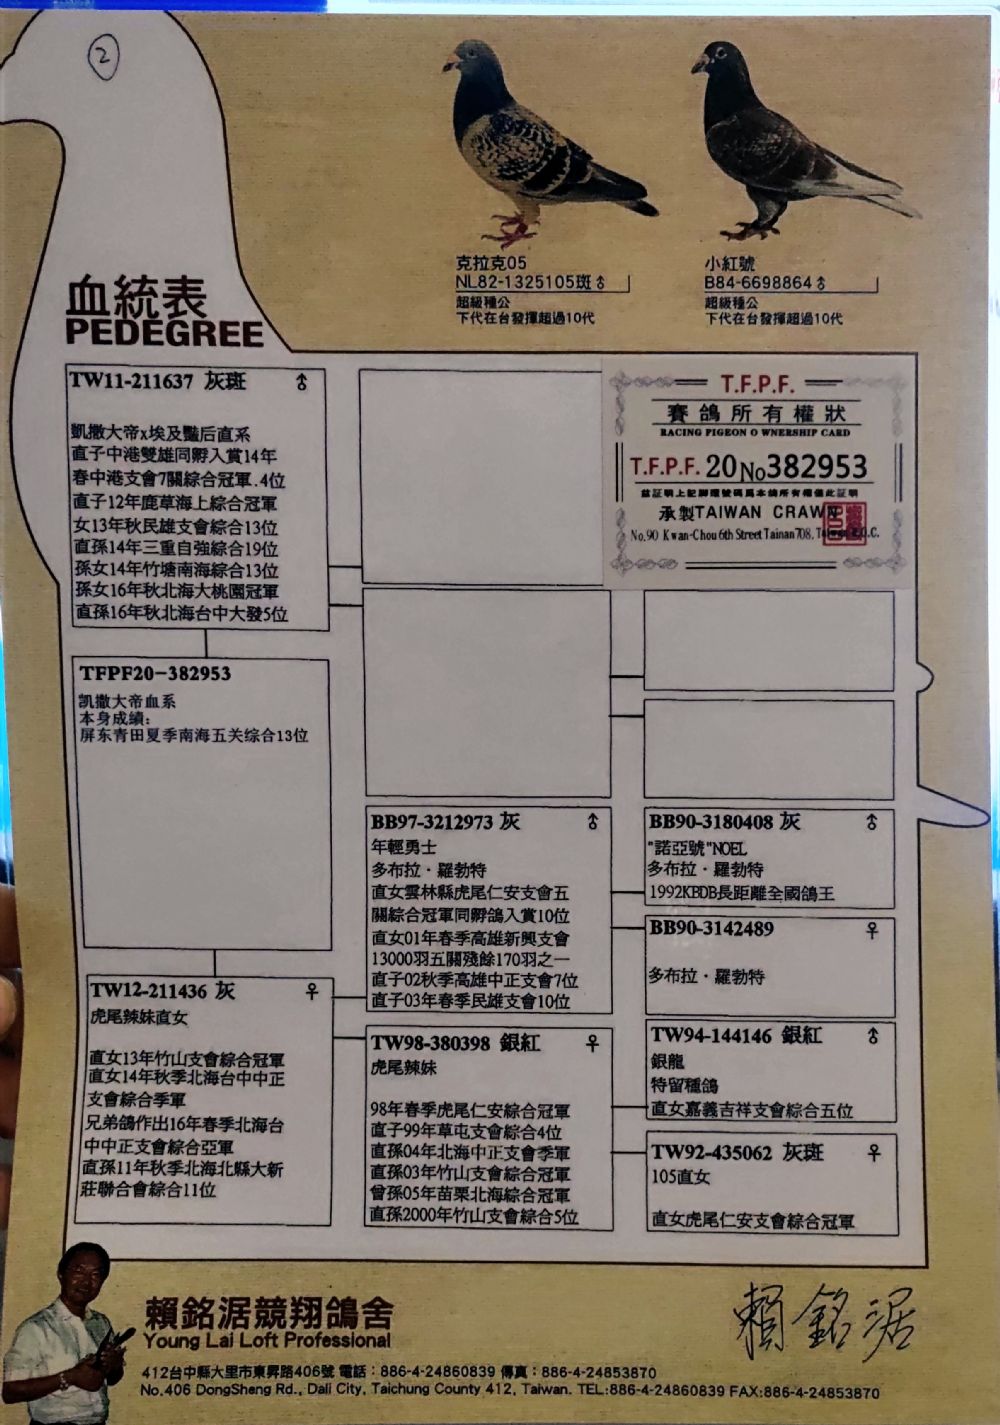 2
克拉克05
NL82-1325105斑♂
超級種公
下代在台發揮超過10代
小紅號
B84-6698864♂
超級種公
下代在台發揮超過10代
血統表
PEDEGREE
TW11-211637 灰斑 ♂
凱撒大帝x埃及豔后直系
直子中港雙雄同孵入賞14年
春中港支會7關綜合冠軍.4位
直子12年鹿草海上綜合冠軍
女13年秋民雄支會綜合13位
直孫14年三重自強綜合19位
孫女14年竹塘南海綜合13位
孫女16年秋北海大桃園冠軍
直孫16年秋北海台中大發5位
T.F.P.F.
賽鴿所有權狀
RACING PIGEON O WNERSHIP CARD
T.F.P.F. 20 No382953
茲証明上記腳環號碼為本鴿所有權僅此証明
承製TAIWAN CRAWN
No.90 Kwan-Chou 6th Street Tainan 708, Taiwan R.O.C.
TFPF20-382953
凯撒大帝血系
本身成績:
屏东青田夏季南海五关综合13位
BB97-3212973 灰 ♂
年輕勇士
多布拉·羅勃特
直女雲林縣虎尾仁安支會五
關綜合冠軍同孵鴿入賞10位
直女01年春季高雄新興支會
13000羽五關殘餘170羽之一
直子02秋季高雄中正支會7位
直子03年春季民雄支會10位
BB90-3180408 灰 ♂
"諾亞號"NOEL
多布拉·羅勃特
1992KBDB長距離全國鴿王
BB90-3142489 ♀
多布拉·羅勃特
TW12-211436 灰 ♀
虎尾辣妹直女
直女13年竹山支會綜合冠軍
直女14年秋季北海台中中正
支會綜合季軍
兄弟鴿作出16年春季北海台
中中正支會綜合亞軍
直孫11年秋季北海北縣大新
莊聯合會綜合11位
TW98-380398 銀紅 ♀
虎尾辣妹
98年春季虎尾仁安綜合冠軍
直子99年草屯支會綜合4位
直孫04年北海中正支會季軍
直孫03年竹山支會綜合冠軍
曾孫05年苗栗北海綜合冠軍
直孫2000年竹山支會綜合5位
TW94-144146 銀紅 ♂
銀龍
特留種鴿
直女嘉義吉祥支會綜合五位
TW92-435062 灰斑 ♀
105直女
直女虎尾仁安支會綜合冠軍
賴銘涺競翔鴿舍
Young Lai Loft Professional
賴銘涺
412台中縣大里市東昇路406號 電話:886-4-24860839 傳真:886-4-24853870
No.406 DongSheng Rd., Dali City, Taichung County 412, Taiwan. TEL:886-4-24860839 FAX:886-4-24853870